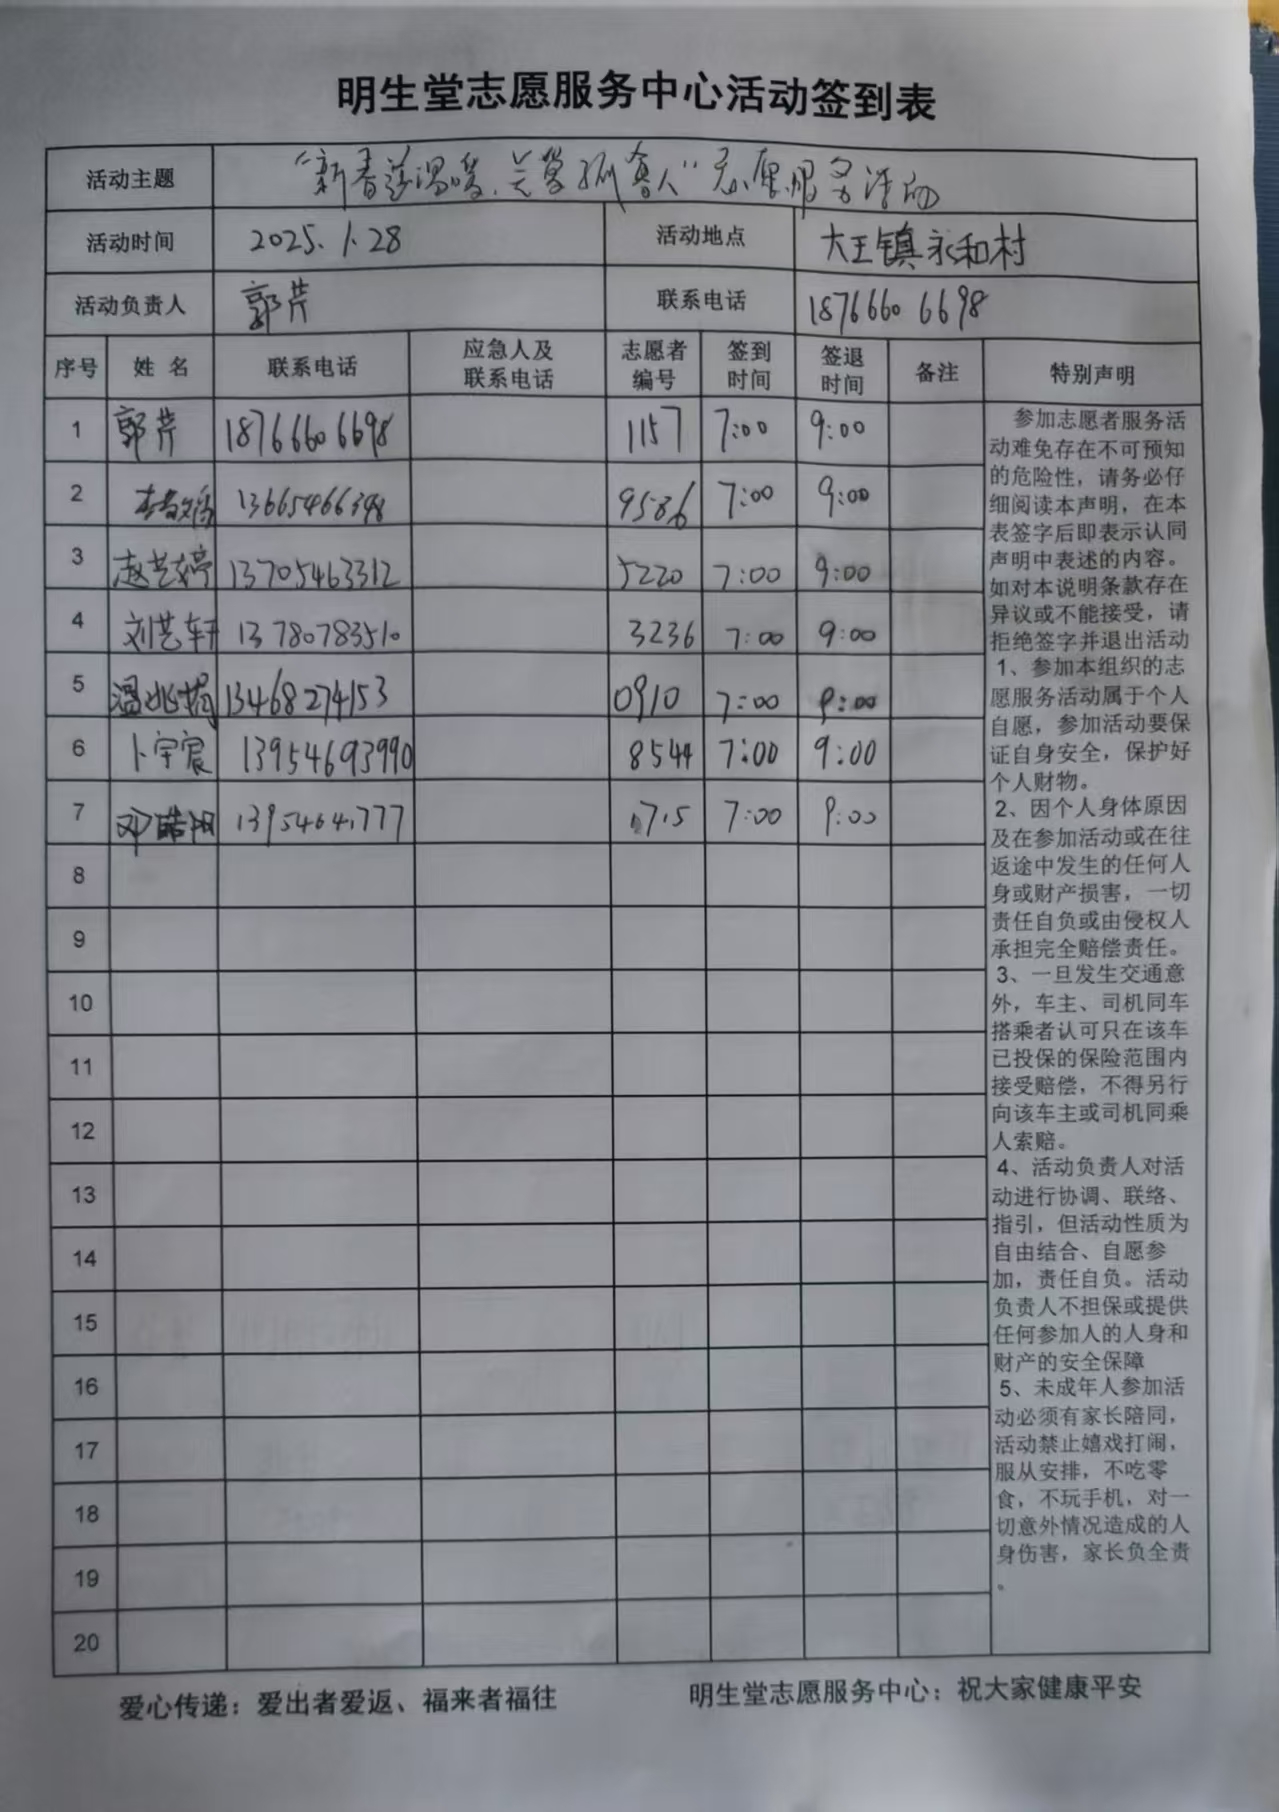 明生堂志愿服务中心活动签到表
活动主题 “新春送温暖,关爱孤寡人”志愿服务活动
活动时间 2025.1.28 活动地点 大王镇永和村
活动负责人 郭芹 联系电话 18766606698
序号 姓名 联系电话 应急人及联系电话 志愿者编号 签到时间 签退时间 备注 特别声明
1 郭芹 18766606698 1157 7:00 9:00
2 13665466398 9586 7:00 9:00
3 赵艺婷 13705463312 5220 7:00 9:00
4 刘艺轩 13780783510 3236 7:00 9:00
5 13468274153 0910 7:00 9:00
6 卜宇宸 13954693990 8544 7:00 9:00
7 邓皓阳 13954641777 7:00 9:00
8
9
10
11
12
13
14
15
16
17
18
19
20
参加志愿者服务活
动难免存在不可预知
的危险性，请务必仔
细阅读本声明，在本
表签字后即表示认同
声明中表述的内容。
如对本说明条款存在
异议或不能接受，请
拒绝签字并退出活动
1、参加本组织的志
愿服务活动属于个人
自愿，参加活动要保
证自身安全，保护好
个人财物。
2、因个人身体原因
及在参加活动或在往
返途中发生的任何人
身或财产损害，一切
责任自负或由侵权人
承担完全赔偿责任。
3、一旦发生交通意
外，车主、司机同车
搭乘者认可只在该车
已投保的保险范围内
接受赔偿，不得另行
向该车主或司机同乘
人索赔。
4、活动负责人对活
动进行协调、联络、
指引，但活动性质为
自由结合、自愿参
加，责任自负。活动
负责人不担保或提供
任何参加人的人身和
财产的安全保障
5、未成年人参加活
动必须有家长陪同，
活动禁止嬉戏打闹，
服从安排，不吃零
食，不玩手机，对一
切意外情况造成的人
身伤害，家长负全责
。
爱心传递：爱出者爱返、福来者福往 明生堂志愿服务中心：祝大家健康平安